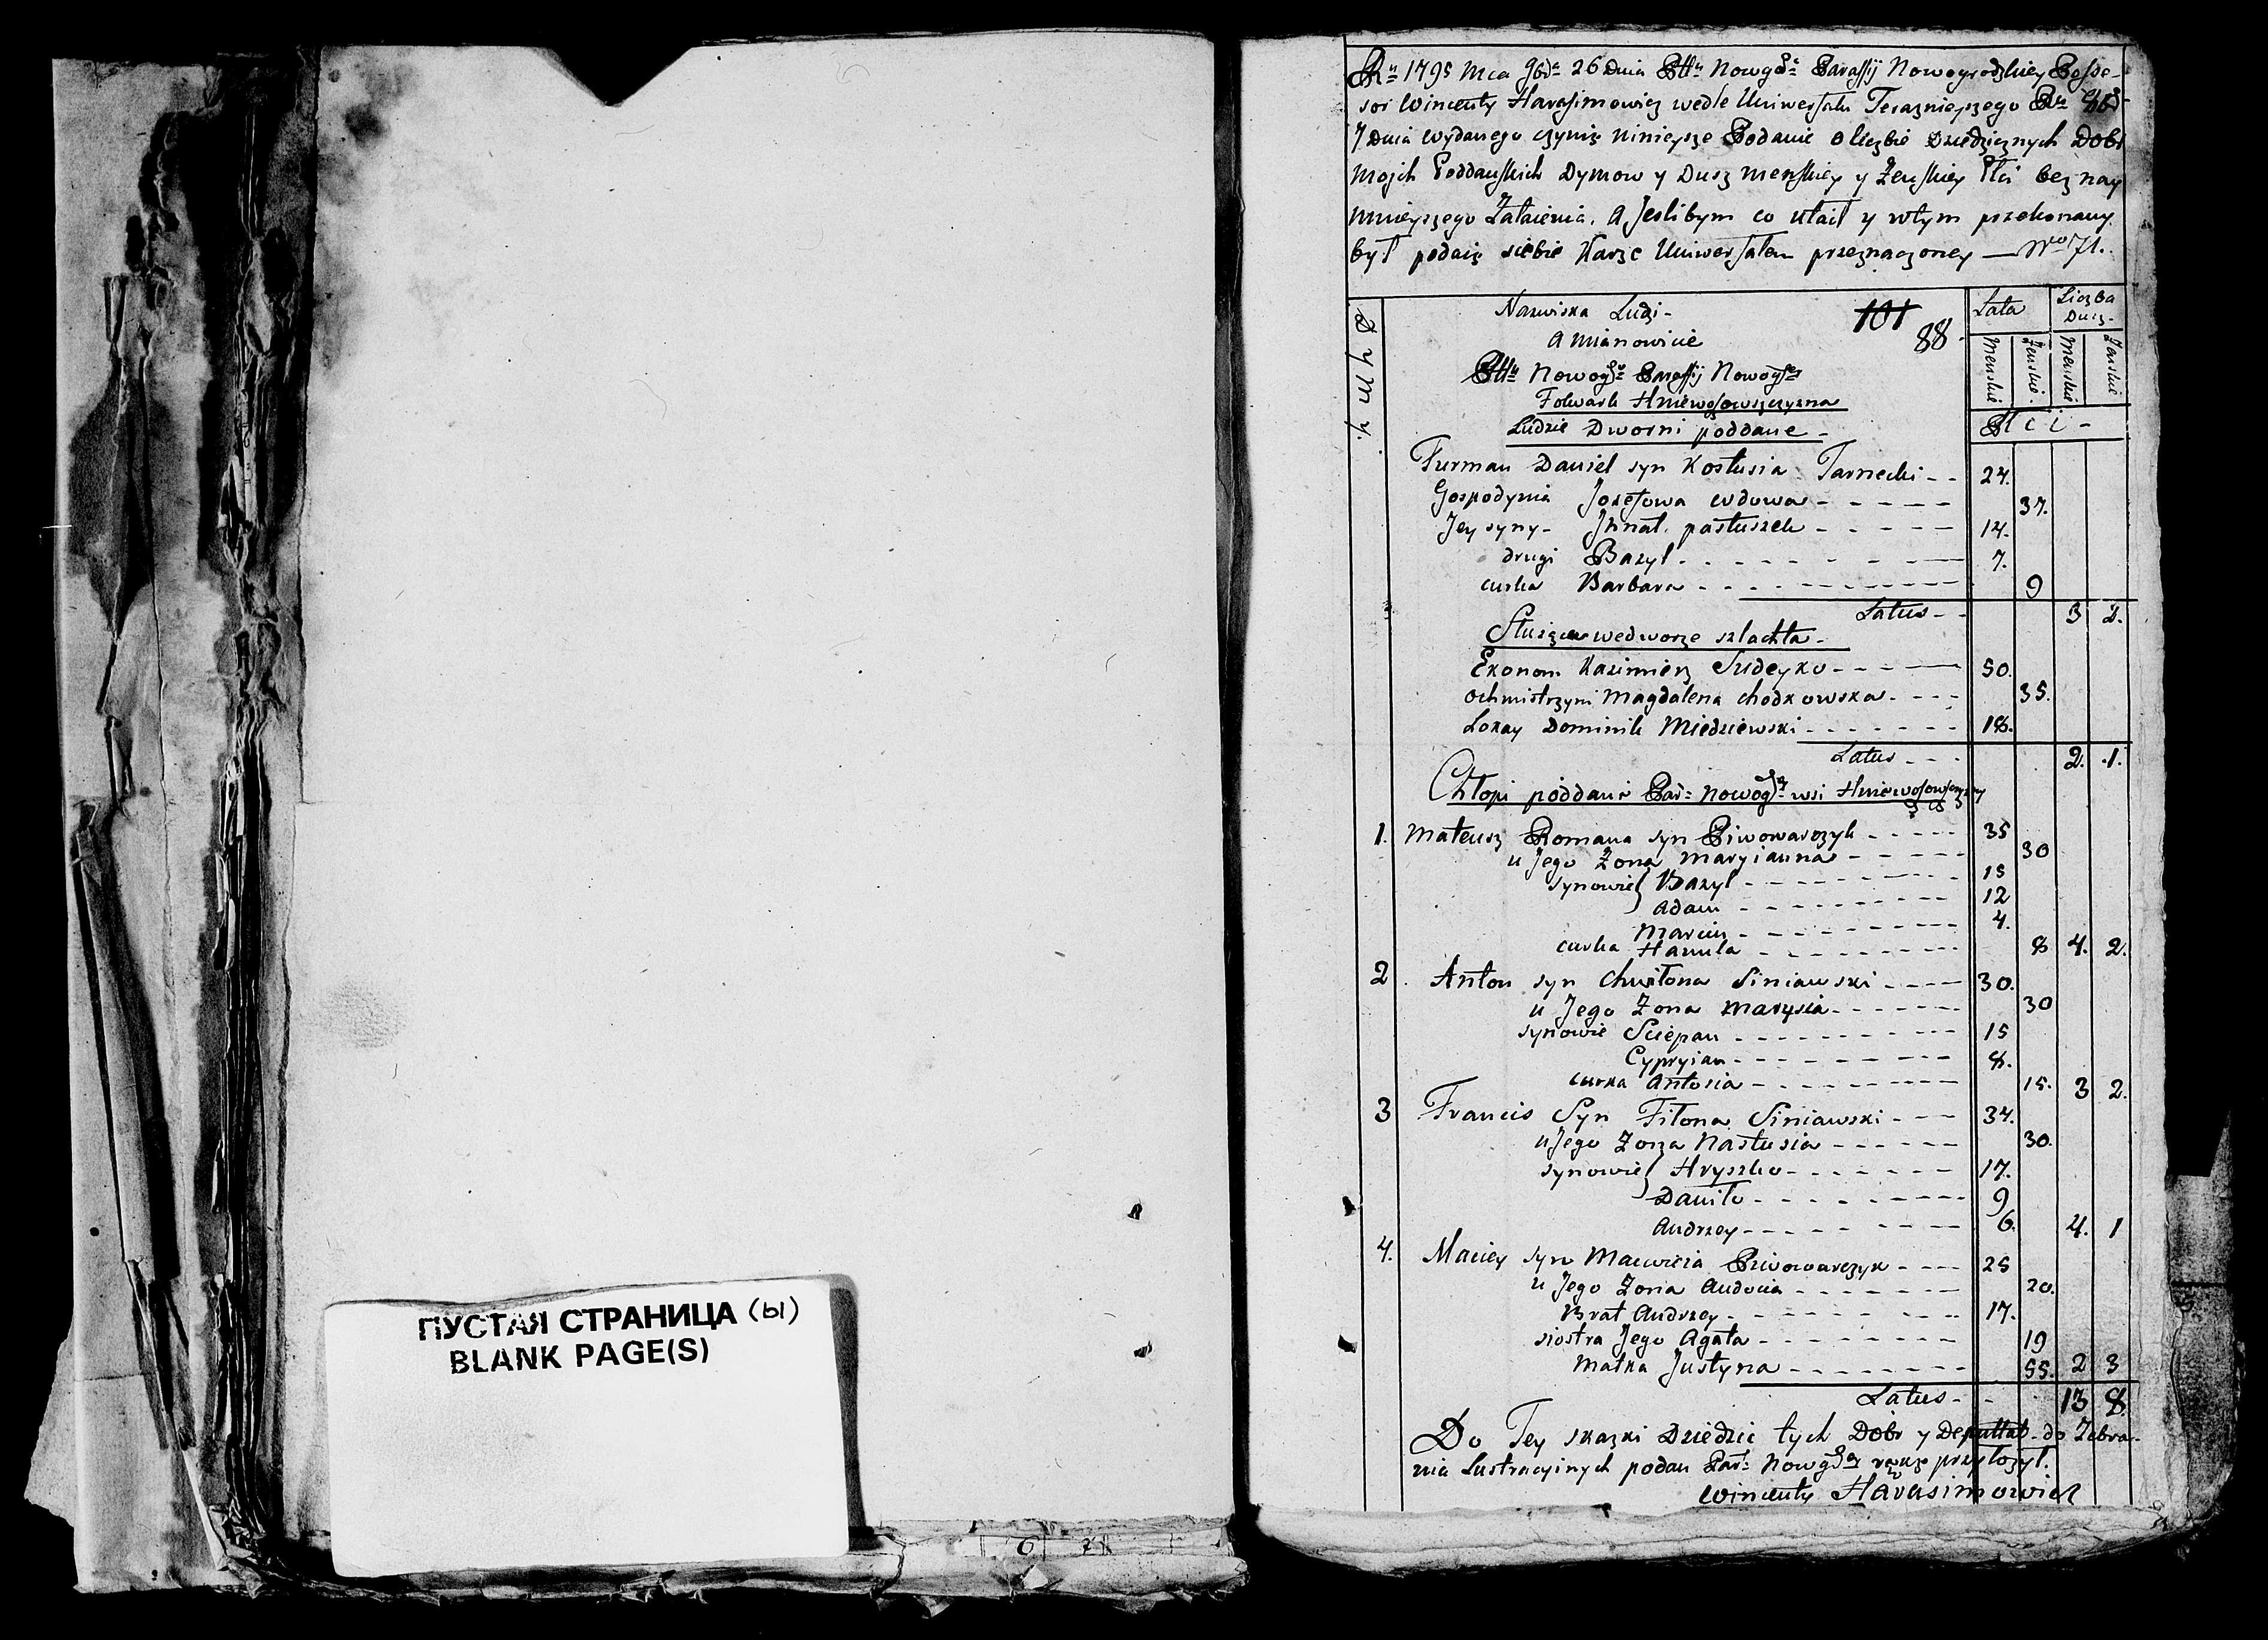 ПУСТАЯ СТРАНИЦА (ы)
BLANK PAGE(S)
Ru 1795 Mca 9bra 26 Dnia Pttu Nowgo Parafij Nowogrodzkiey Posse-
sor Wincenty Harasimowicz wedle Uniwersału Terazniejszego Ru 8bra
7 Dnia wydanego czynię niniejsze Podanie o liczbie Dziedzicznych Dobr
Mojch Poddanskich Dymow y Dusz Menskiey y Żenskiey Płci bez nay
mnieyszego Zataienia. A Jeslibym co utaił y wtym przekonany
był podaię siebie Karze Uniwersałem przeznaczoney — No 71.
Dymy.
Nazwiska Ludzi -
101
Lata
Liczba Dusz -
a Mianowicie
88
Menskie
Żenskie
Menskie
Żenskie
Pttu Nowogo Parafij Nowogo
Folwark Hniewosowszczyzna
Płci -
Ludzie Dworni poddane -
Furman Daniel syn Kostusia Tarnecki - - 24.
Gospodynia Jozefowa wdowa - - - - - 37.
Jey syny - Jhnat. pastuszek - - - - 14.
drugi Bazyl - - - - - - 7.
curka Barbara - - - - - - 9
Latus - - 3 2.
Służące wedworze szlachta -
Ekonom Kazimierz Sudeyko - - - - 50.
Ochmistrzyni Magdalena Chodkowska - - - - 35.
Lokay Dominik Miedziewski - - - - - - 18.
Latus - - - 2. 1.
Chłopi poddanie Par: Nowogr wsi Hniewosowszczyzny
1. Mateusz Romana syn Piwowarczyk - - - - - 35
u Jego Żona Maryianna - - - - - 30
synowie Bazyl - - - - - - 15
Adam - - - - - - 12
Marcin - - - - - - 4.
curka Hanula - - - - - - 8 4. 2.
2. Anton syn Chwitona Siniawski - - - - 30.
u Jego Żona Marysia - - - - - - 30
synowie Sciepan - - - - - - 15
Cypryian - - - - - - 8.
curka Antosia - - - - - - 15. 3 2.
3 Francis Syn Fitona Siniawski - - - 34.
u Jego Żona Nastusia - - - - - - 30.
synowie Hryszko - - - - - - 17.
Daniło - - - - - - 9
Andrzey - - - - - - 6. 4. 1
4. Maciey syn Macwieia Piwowarczyk - - - - 25
u Jego Żona Audocia - - - - - - 20.
Brat Andrzey - - - - - - 17.
siostra Jego Agata - - - - - - 19
Matka Justyna - - - - - - 55. 2 3
Latus - - 13 8.
Do Tey skazki Dziedzic tych Dobr y Deputtat do Zebra-
nia Lustracyinych podan Par: Nowgr rękę przyłożył.
Wincenty Harasimowicz